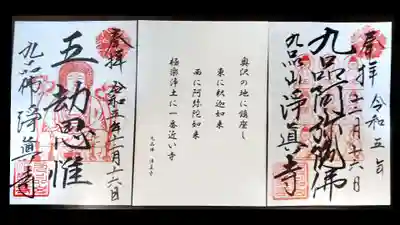 奉拝
令和五年十二月十六日
九品阿弥陀佛
九品山淨真寺
奥沢の地に鎮座し
東に釈迦如来
西に阿弥陀如来
極楽浄土に一番近い寺
九品佛 浄真寺
奉拝
令和五年十二月十六日
五劫思惟
九品佛
淨真寺